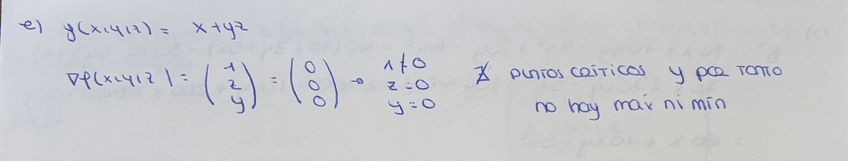 e) y(x,y,z) = x+yz
∇f(x,y,z) = (1 z y) = (0 0 0) → 1≠0 z=0 y=0 ∄ puntos críticos y por tanto
no hay máx ni mín